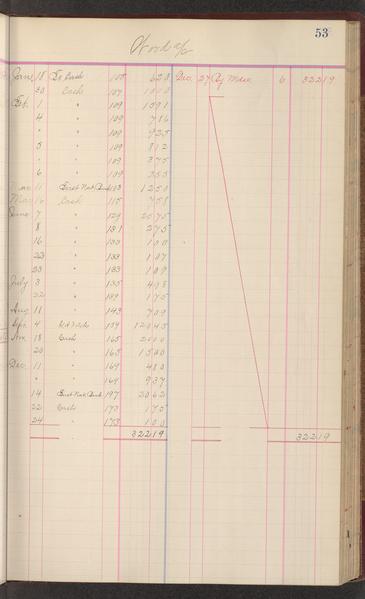 53
Wood a/c
June 18 To Cash 105 628 Dec. 27 By Mdse 6 32219
30 Cash 107 1010
Feb. 1 " 109 1391
4 " 109 786
" " 109 925
5 " 109 812
" " 109 375
6 " 109 355
11 First Nat Bank 1250
May 16 Cash 115 758
June 7 " 129 2075
8 " 131 275
16 " 133 100
23 " 133 107
23 " 133 109
July 3 " 135 498
22 " 139 175
Aug 11 " 143 709
Sept. 4 159 12045
Nov. 18 Cash 165 2010
20 " 165 1500
Dec. 11 " 169 480
" " 169 937
14 First Nat Bank 197 2062
22 Cash 173 175
24 " 173 100
32219 32219